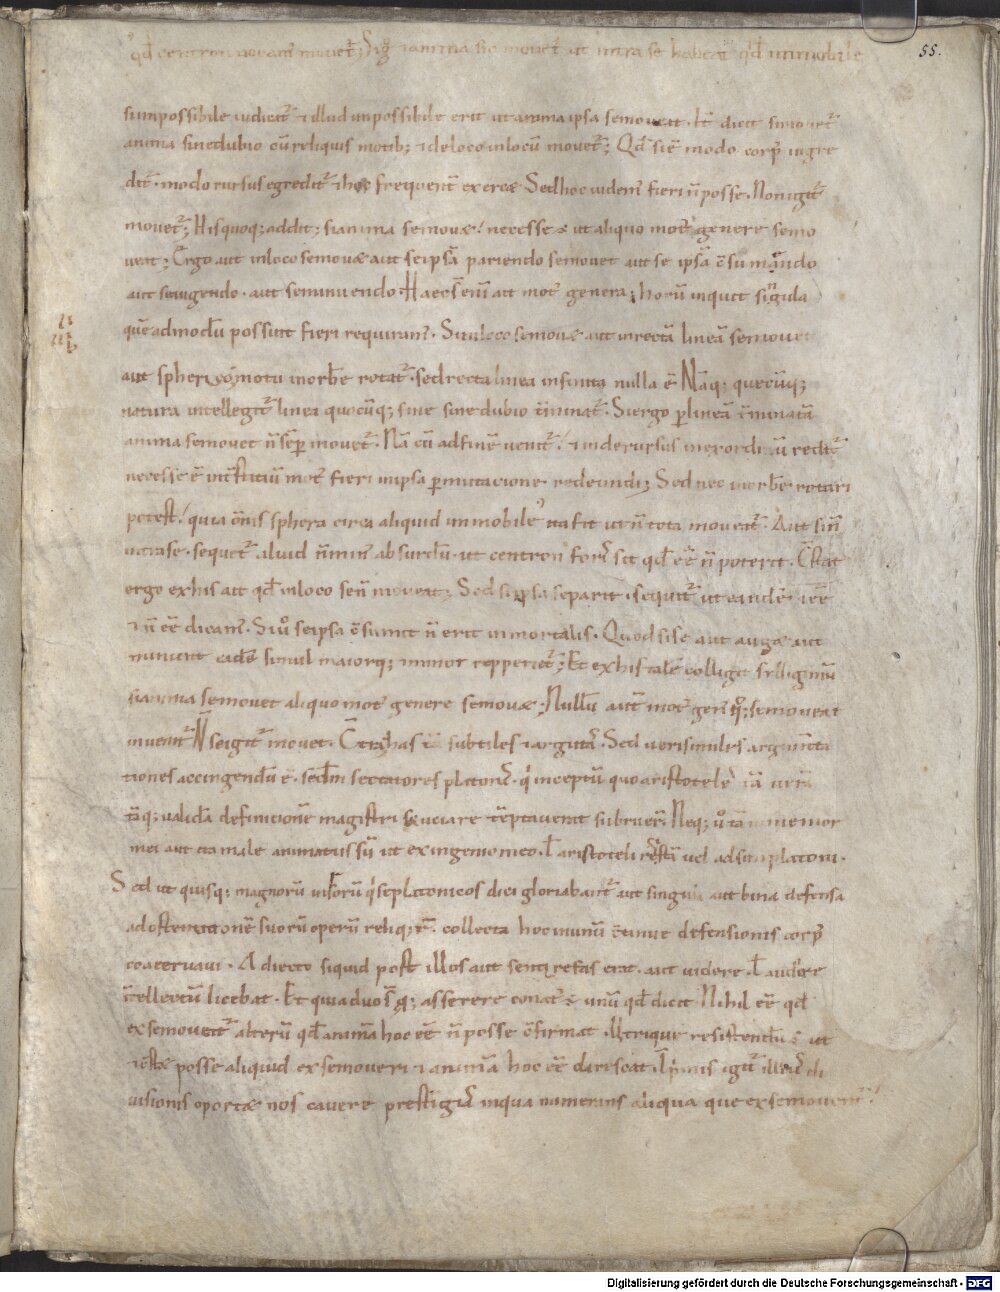 qđ centron non aut̄ mouet̄. Sig̊ ianima sic mouet̄ ut intra se habeat qđ immobile
55.
simpossibile iudicat᷑ & illud inpossibile erit ut anima ipsa se moueat. It̄ dicit si mouet᷑
anima sine dubio cū reliquis motib; & de loco in locū mouet᷑; Qđ si ē modo corp᷒ ingre
dit᷑. modo rursus egredit᷑ & hoc frequent̄ exercæ Sed hoc uidem᷒ fieri n̄ posse. Non igit᷑
mouet᷑; His quoq; addit; si anima se mouæ. necesse ē ut aliquo mot᷒ genere se mo
ueat; Ergo aut in loco se mouæ aut se ipsā pariendo se mouet aut se ipsā c̄sumando
aut se iugendo. aut se minuendo. Haec s̄ enī ait mot᷒ genera; horū inquit singula
quēadmodū possint fieri requiram᷒. Si in loco se mouæ aut in rectā lineā se mouet
aut spherico motu in orbē rotat᷑. sed recta linea infinita nulla ē Nāq; quecūq;
natura intellegit᷑ linea quocūq; fine sine dubio t̄minat᷑. Si ergo p̱ lineā t̄minatā
anima se mouet n̄ sēp̱ mouet᷑. Nā cū ad finē uenit᷑. & inde rursus in exordiū redit᷑
necesse ē int̄stitiū mot᷒ fieri in ipsa p̱mutacione redeundi; Sed nec in orbē rotari
potest. quia om̄is sphera circa aliquid immobile
intra se. sequet᷑ aliud n̄ min᷒ absurdū. ut centron foris sit qđ eē n̄ poterit. Cstat
ergo ex his ait qđ in loco se n̄ moueat; Sed si ipsa se parit. sequit᷑ ut eandē & eē
& n̄ eē dicam᷒. Si ů se ipsa c̄sumit n̄ erit inmortalis. Quod si se aut augæ aut
minuit eadē simul maior q; & minor repperiet᷑; Et ex his talē colligit sillogismū
si anima se mouet aliquo mot᷒ genere se mouæ. Nullū aut̄ mot᷒ gen᷒ quo se moueat
inuenit᷑ N̄ se igit᷑ mouet. Contra has tā subtiles & argutas. Sed uerisimiles argumēta
tiones accingendū ē. sedm̄ sectatores platonis. q̇ inceptū quo aristoteles tā uerā
tāq; ualidā definicionē magistri sauciare tēptauerit subruer̄. Neq; ů tā inmemor
mei aut ita male animatus sū ut ex ingenio meo. ł aristoteli resistā uel adsim platoni.
Sed ut quisq; magnorū uirorū q̇ se platonicos dici gloriabant᷑ aut singula aut bina defensa
ad ostentationē suorū operū reliqr̄. collecta hoc in unū c̄tinue defensionis corp᷒
coaceruaui. Adiecto siquid post illos aut sentire fas erat. aut uidere. ł audere
int̄ellectū licebat. Et quia duo s̄ q; asserere conat᷒ ē unū qđ dicit Nihil eē qđ
ex se mouet᷑ alterū qđ animā hoc eē n̄ posse c̄firmat. Utrique resistendū ē ut
& c̄stæ posse aliquid ex se moueri & animā hoc eē clarescat. In p̄mis igit᷑ illius di
uisionis oportæ nos cauere prestigias in qua numerans aliqua que ex se mouent᷑.
Digitalisierung gefördert durch die Deutsche Forschungsgemeinschaft - DFG